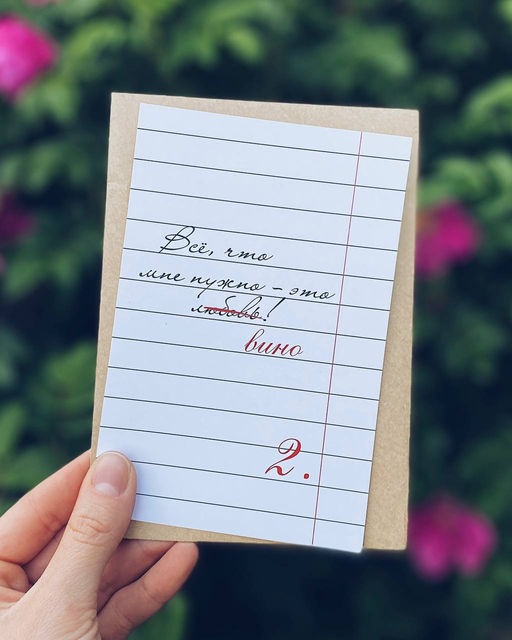 Всё, что
мне нужно – это
любовь!
вино
2.